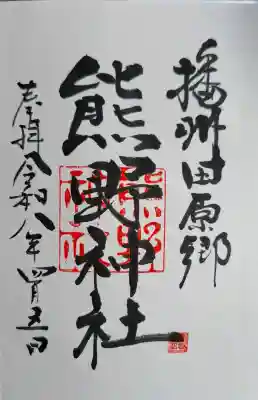 播州田原郷
熊野神社
奉拝 令和八年四月五日